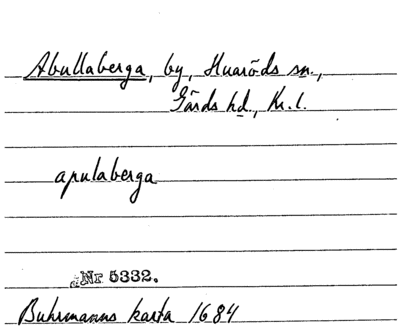 Abullaberga, by, Huaröds sn.,
Gärds hd., Kr. l.
apulaberga
Nr 5332.
Buhrmanns karta 1684